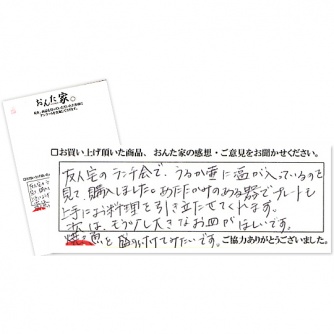 おんた家。
□お買い上げ頂いた商品、おんた家の感想・ご意見をお聞かせください。
友人宅のランチ会で、うるか壷に塩が入っているのを
見て、購入しました。あたたかみのある器でプレートも
上手にお料理を引き立たせてくれます。
次は、もう少し大きなお皿がほしいです。
焼魚を盛り付けてみたいです。
ご協力ありがとうございました。